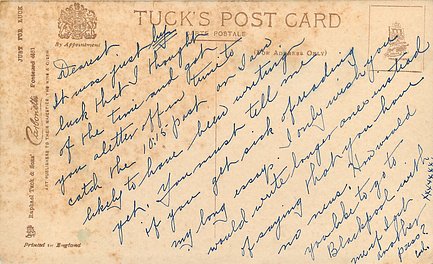 TUCK'S POST CARD
CARTE POSTALE
By Appointment
(FOR ADDRESS ONLY)
JUST FOR LUCK
Carbonette Postcard
Raphael Tuck & Sons'
ART PUBLISHERS TO THEIR MAJESTIES THE KING & QUEEN
Printed in England
Dearest
It was just by
luck that I thought
of the time and got
you a letter off in time to
catch the 10.15 post on I
likely to have been writing
yet. You must tell me
if you get sick of reading
my long essays. I only wish you
would write longer ones instead
of saying that you have
no news. How would
you like to go to
Blackpool with
me if I got
another
pass?
xxxxxx